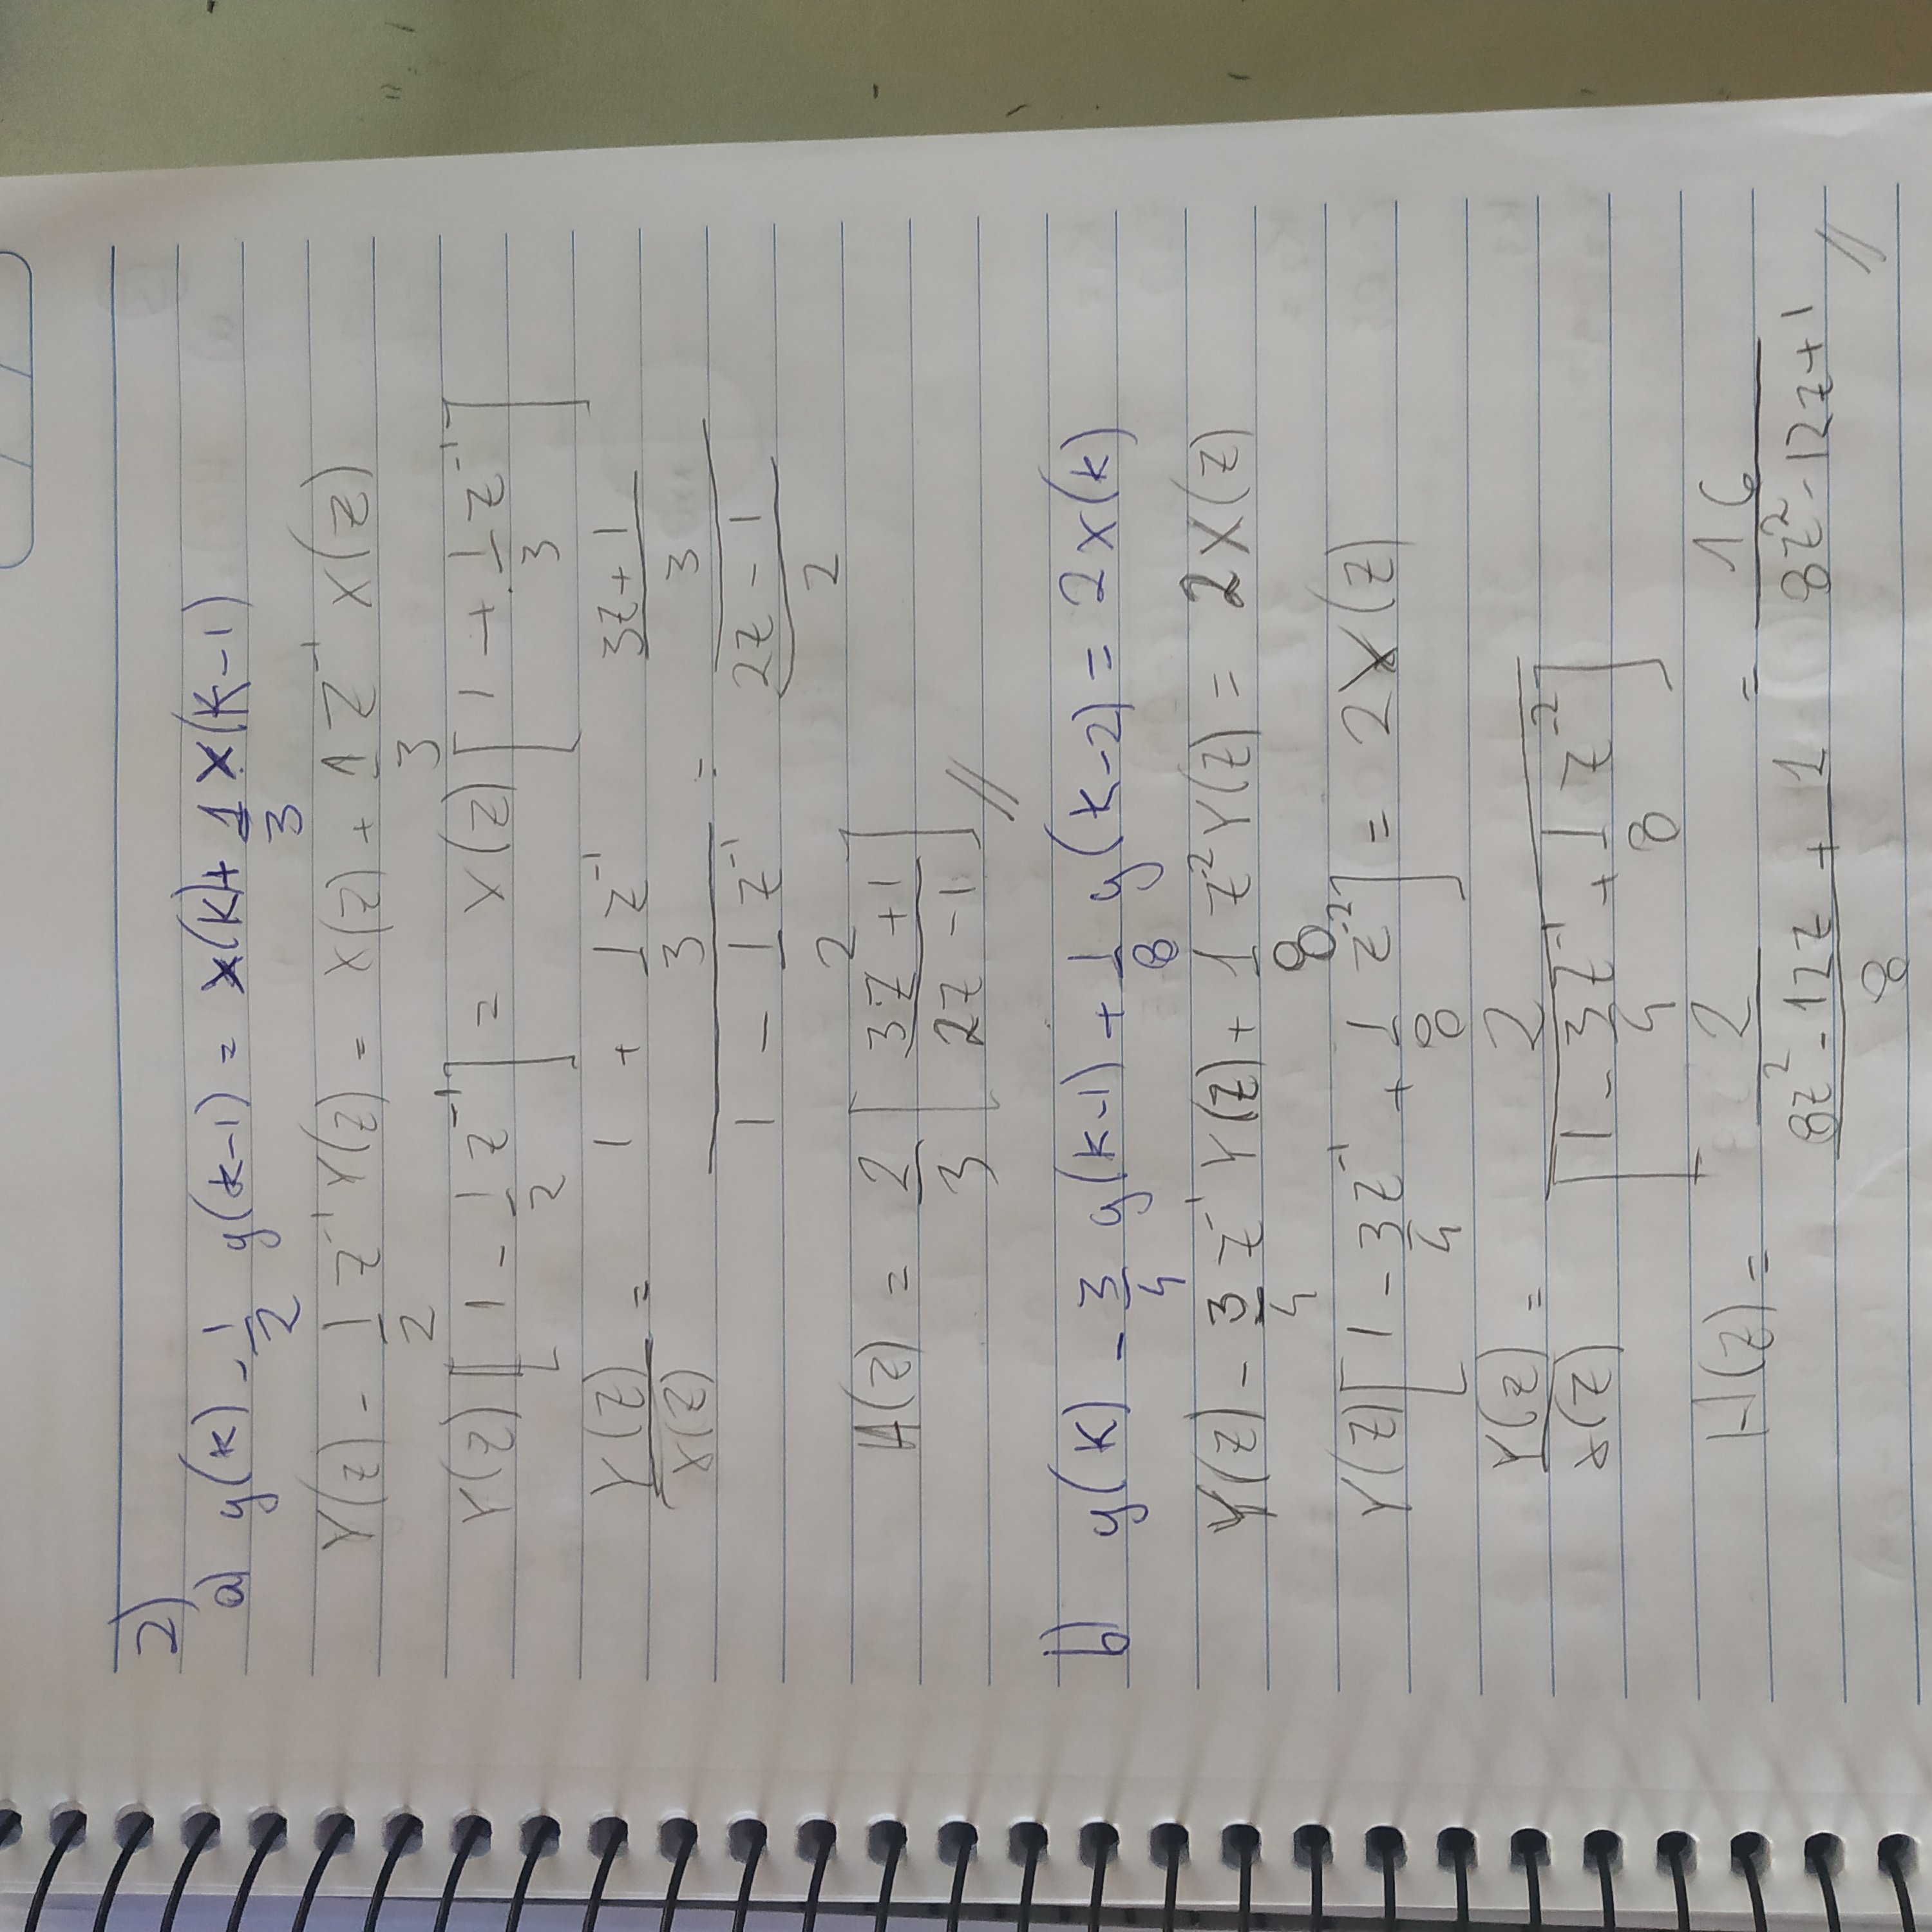 2)
a) y(k) - 1/2 y(k-1) = x(k) + 1/3 x(k-1)
Y(z) - 1/2 z⁻¹ Y(z) = X(z) + 1/3 z⁻¹ X(z)
Y(z) [1 - 1/2 z⁻¹] = X(z) [1 + 1/3 z⁻¹]
Y(z)/X(z) = (1 + 1/3 z⁻¹)/(1 - 1/2 z⁻¹) = ((3z+1)/3)/((2z-1)/2)
H(z) = 2/3 [(3z+1)/(2z-1)] //
b) y(k) - 3/4 y(k-1) + 1/8 y(k-2) = 2x(k)
Y(z) - 3/4 z⁻¹ Y(z) + 1/8 z⁻² Y(z) = 2X(z)
Y(z) [1 - 3/4 z⁻¹ + 1/8 z⁻²] = 2X(z)
Y(z)/X(z) = 2/[1 - 3/4 z⁻¹ + 1/8 z⁻²]
H(z) = 2/((8z² - 12z + 1)/8) = 16/(8z² - 12z + 1) //